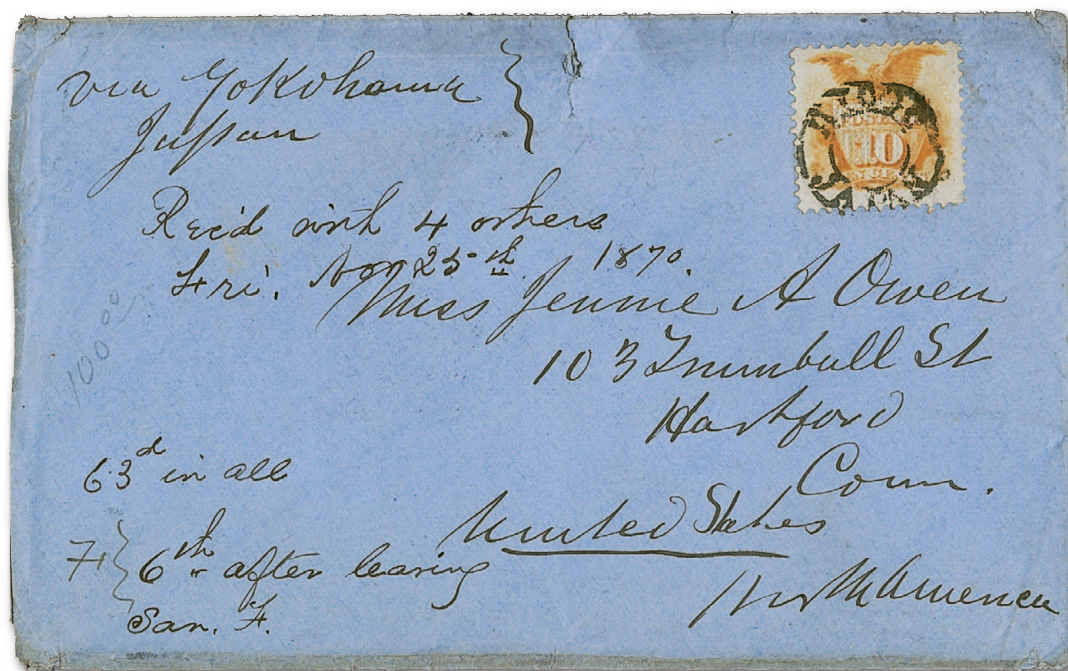 via Yokohama
Japan
Rec'd with 4 others
Fri. Nov 25th 1870.
Miss Jennie A Owen
103 Trumbull St
Hartford
Conn.
United States
North America
100 00
63d in all
7 6th after leaving
San. F.
10